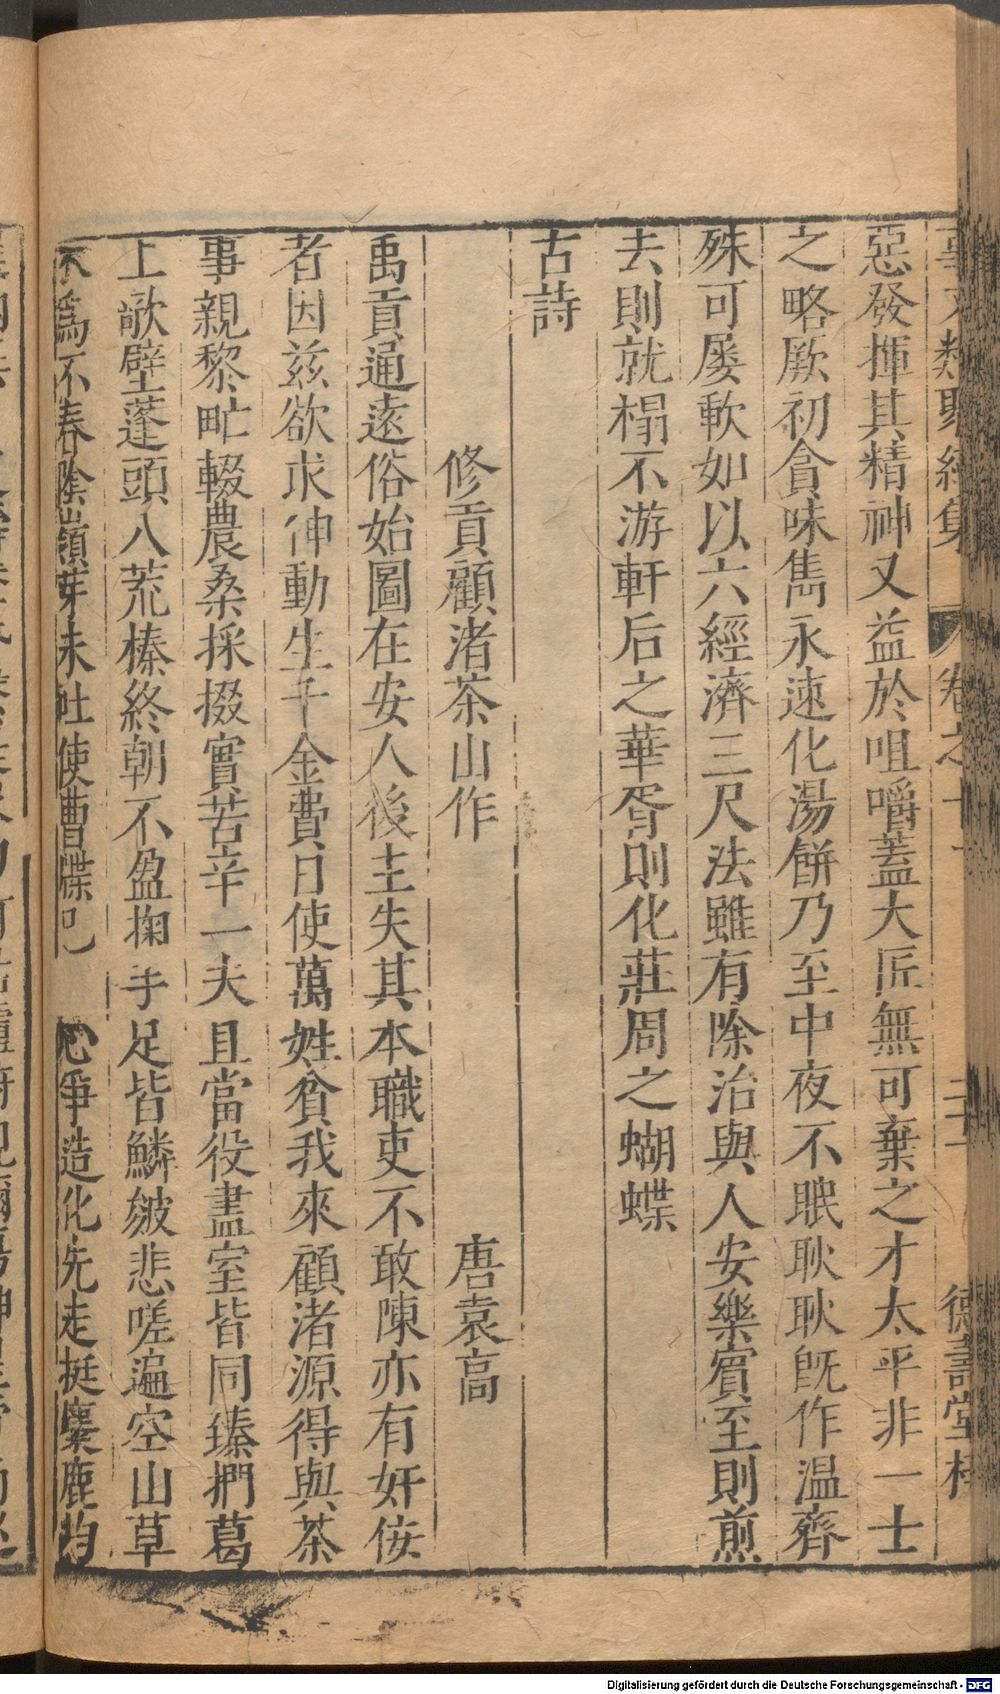 事文類聚續集　卷之十二　德壽堂梓
惡發揮其精神又益於咀嚼蓋大匠無可棄之才太平非一士
之略厥初貪味雋永速化湯餅乃至中夜不眠耿耿旣作溫齊
殊可屡軟如以六經濟三尺法雖有除治與人安樂賓至則煎
去則就榻不游軒后之華胥則化莊周之蝴蝶
古詩
修貢顧渚茶山作　唐袁高
禹貢通遠俗始圖在安人後主失其本職吏不敢陳亦有奸佞
者因兹欲求伸動生千金費日使萬姓貧我來顧渚源得與茶
事親黎甿輟農桑採掇實苦辛一夫且當役盡室皆同臻捫葛
上欹壁蓬頭入荒榛終朝不盈掬手足皆鱗皴悲嗟遍空山草
木爲不春陰嶺芽未吐使曹牒已 心爭造化先走挺麋鹿均
Digitalisierung gefördert durch die Deutsche Forschungsgemeinschaft - DFG